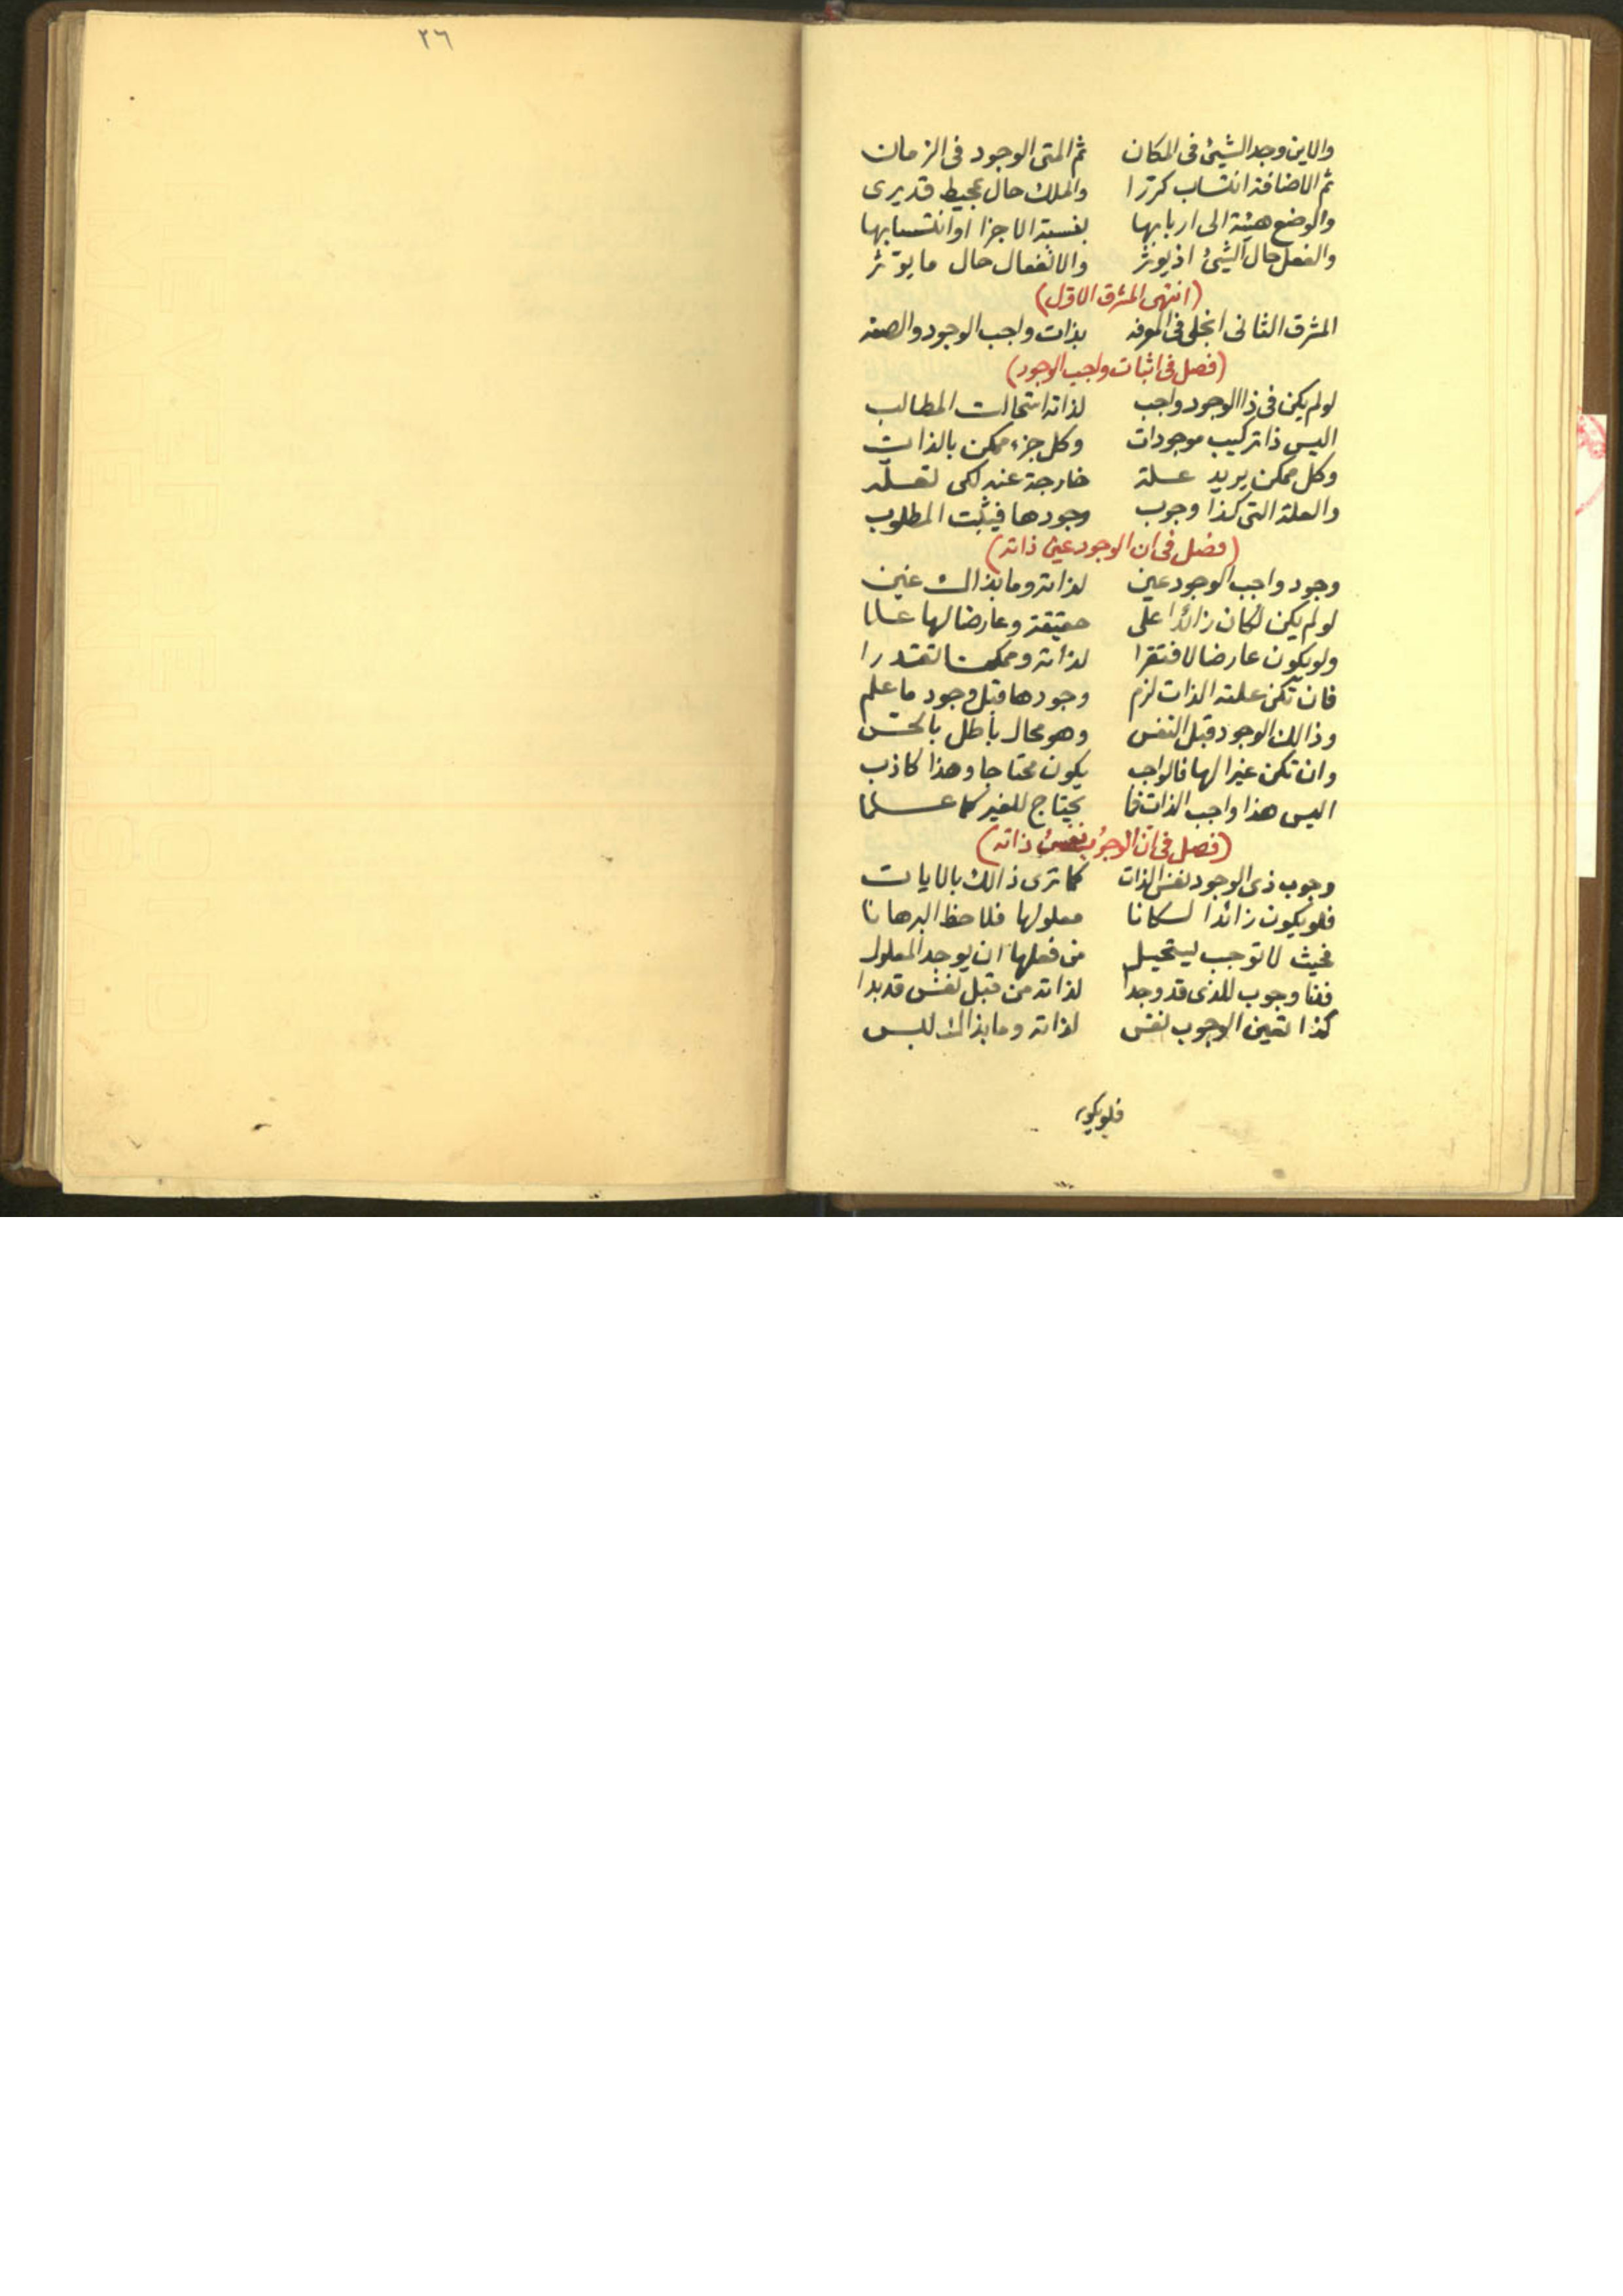 ٢٦
والاين وجد الشيئ فى المكان ثم المتى الوجود فى الزمان
ثم الاضافة انتساب كررا والملك حال بمحيط قد يرى
والوضع هيئة الى اربابها بنسبة الاجزا او انتسابها
والفعل حال الشيئ اذ يوثر والانفعال حال ما يوثر
(انتهى المشرق الاول)
المشرق الثانى انجلى فى المعرفه بذات واجب الوجود والصفه
(فصل فى اثبات واجب الوجود)
لو لم يكن فى ذا الوجود واجب لذاته استحالت المطالب
اليس ذا تركيب موجودات وكل جزء ممكن بالذات
وكل ممكن يريد علة خارجة عنه لكى تعله
والعلة التى كذا وجوب وجودها فيثبت المطلوب
(فصل فى ان الوجود عين ذاته)
وجود واجب الوجود عين لذاته وما بذالك غين
لو لم يكن لكان زائدا على حقيقة وعارضا لها علا
ولو يكون عارضا لافتقرا لذاته وممكنا تقدرا
فان تكن علته الذات لزم وجودها قبل وجود ما علم
وذالك الوجود قبل النفس وهو محال باطل بالحس
وان تكن غيرا لها فالواجب يكون محتاجا وهذا كاذب
اليس هذا واجب الذات فما يحتاج للغير كما علما
(فصل فى ان الوجوب نفس ذاته)
وجوب ذى الوجود نفس الذات كما ترى ذالك بالايات
فلو يكون زائدا لكانا معلولها فلاحظ البرهانا
فحيث لا توجب يستحيل من فعلها ان يوجد المعلول
وجوب للذى قد وجدا لذاته من قبل نفس قد بدا
كذا تعين الوجوب نفس لذاته وما بذالك لبس
فلو يكون